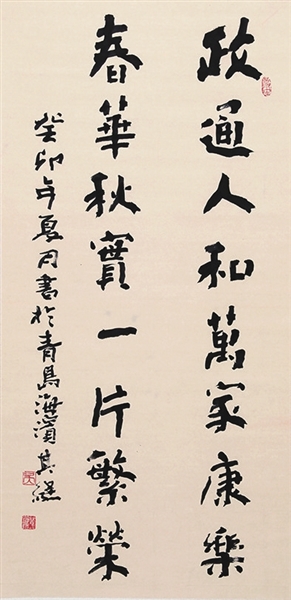 政通人和萬家康樂
春華秋實一片繁榮
癸卯年夏月書於青島海濱其